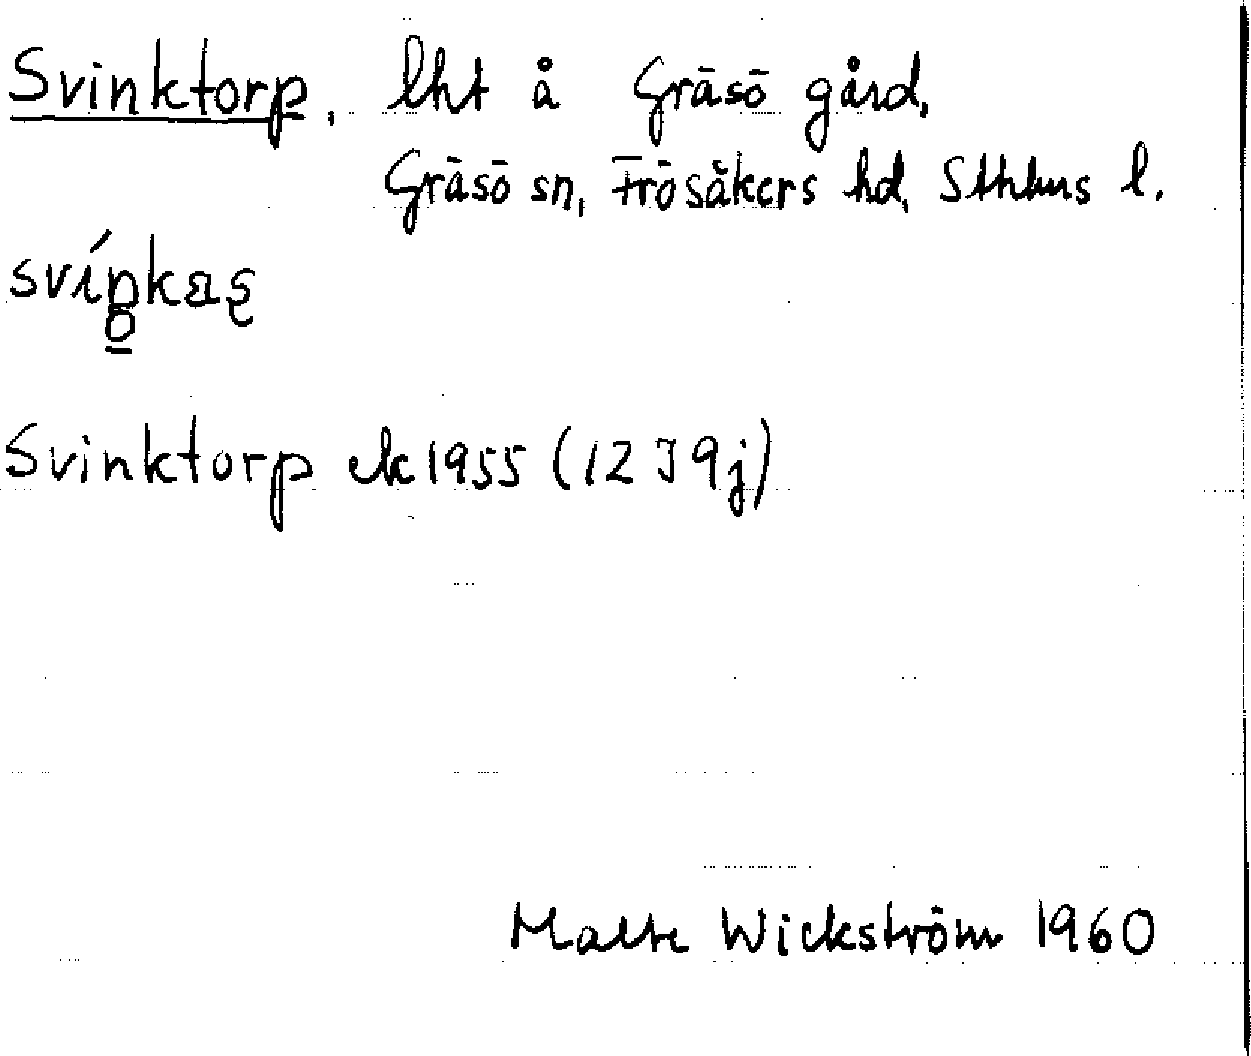 Svinktorp, lht å Gräsö gård,
Gräsö sn, Frösåkers hd, Sthlms l.
Svinktorp ek 1955 (12 J 9j)
Malte Wickström 1960